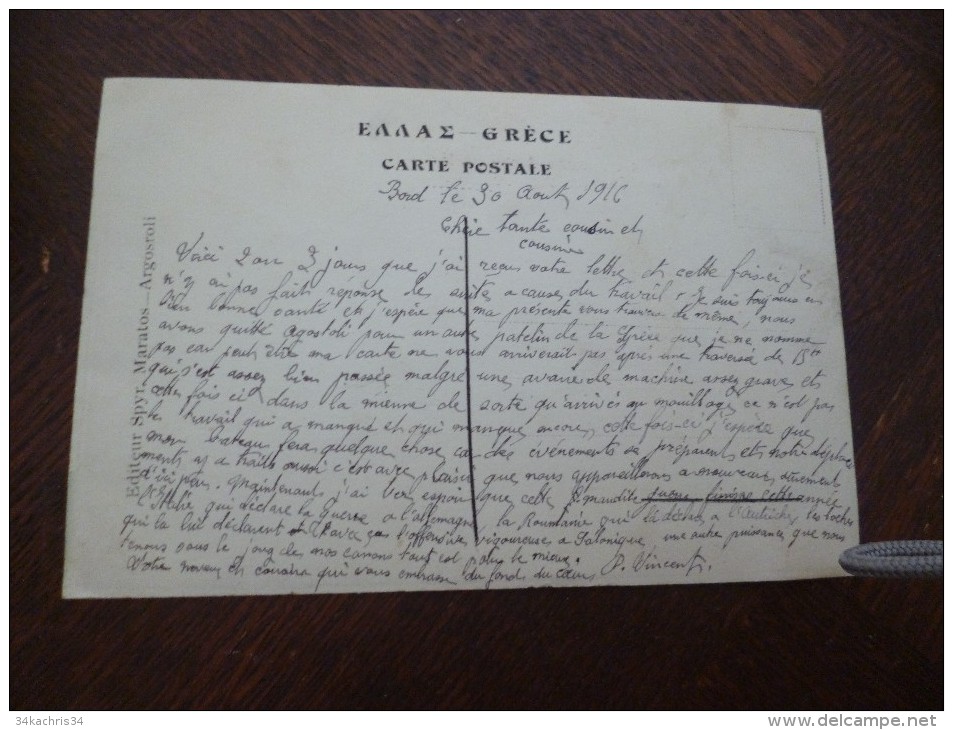 ΕΛΛΑΣ — GRÈCE
CARTE POSTALE
Bord le 30 Aout 1916
Chère tante cousin et
cousine
Voici 2 ou 3 jours que j'ai reçu votre lettre et cette fois-ci je
n'y ai pas fait reponse de suite a cause du travail. Je suis toujours en
bien bonne santé et j'espère que ma présente vous trouve de même, nous
avons quitté Agostoli pour un autre patelin de la Grèce que je ne nomme
pas car peut être ma carte ne vous arriverait pas après une traversée de
qui s'est assez bien passée malgré une avarie de machine assez grave et
cette fois ci dans la mienne de sorte qu'arrivés au mouillage ce n'est pas
le travail qui a manqué et qui manque encore, cette fois-ci j'espère que
mon bateau fera quelque chose car des événements se préparent et notre
ments y a trait aussi c'est avec plaisir que nous appareillerons a nouveau
d'ici peu. Maintenant j'ai bon espoir que cette maudite guerre finisse cette année
l'Italie qui déclare la guerre a l'Allemagne, la Roumanie qui a l'Autriche, les Boches
qui la lui déclarent et avec ça l'offensive vigoureuse a Salonique, une autre puissance que nous
tenons sous le joug de nos canons tout est pour le mieux.
Votre neveu et cousin qui vous embrasse du fond du cœur P. Vincent.
Editeur Spyr. Maratos — Argostoli
34kachris34
www.delcampe.net